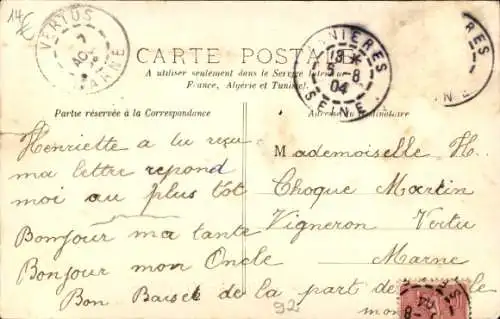 14€
VERTUS
7
AOU
MARNE
CARTE POSTALE
A utiliser seulement dans le Service Intérieur
France, Algérie et Tunisie.
ASNIERES
18 *
5 - 8
04
SEINE
Partie réservée à la Correspondance
Adresse du Destinataire
Henriette a tu reçu
ma lettre repond
moi au plus tot
Bonjour ma tante
Bonjour mon Oncle
Bon Baiset de la part de
Mademoiselle H.
Choque Martin
Vigneron Vertu
Marne
92